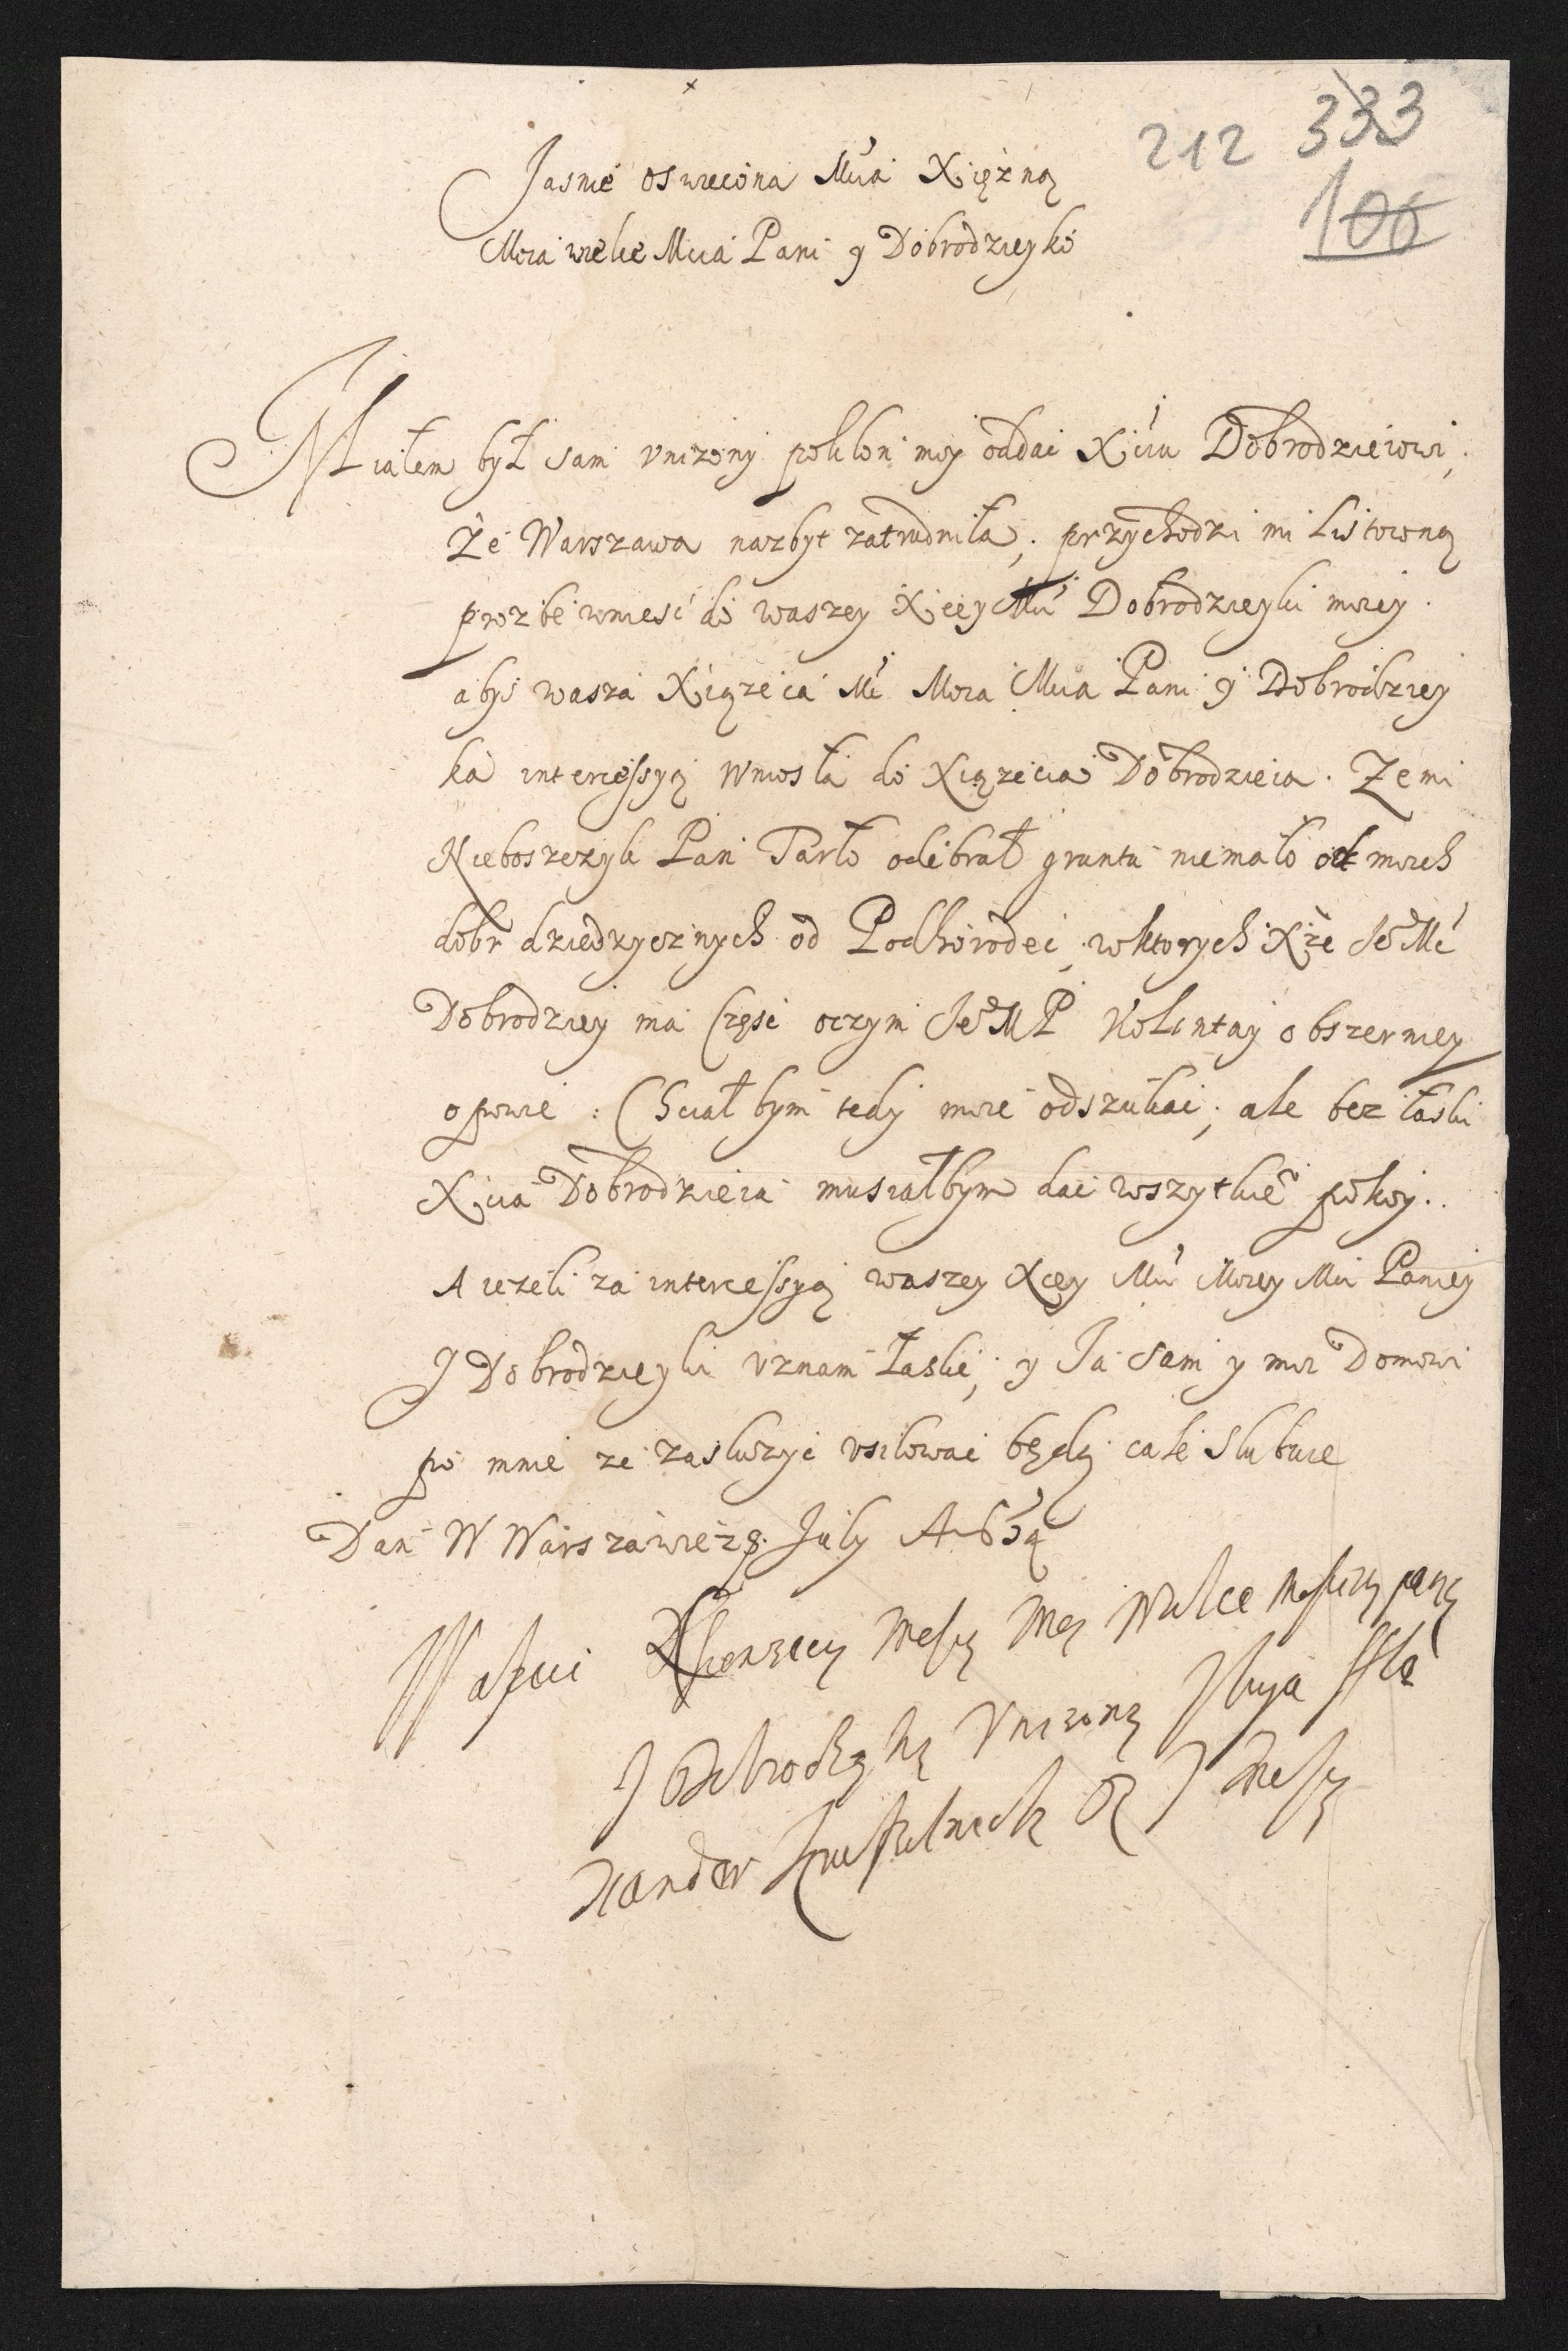 212 333
106
Jasnie oswiecona Mcia Xiężną
Moia wielce Mcia Pani y Dobrodzieyko
Miałem był sam vnizony poklon moy oddac Xiciu Dobrodzieiowi,
Że Warszawa nazbyt zatrudniła; przychodzi mi Listowną
prozbe wniesć do waszey Xiecey Mci Dobrodzieyki moiey.
abys wasza Xiązeca Mć Moia Mcia Pani y Dobrodziey
ka intercessyą wniosła do Xiązecia Dobrodzieia. Ze mi
Nieboszczyk Pan Tarło odebrał gruntu niemało od moich
dobr dziedzycznych od Podhorodec, wktorych Xże JeoMć
Dobrodziey ma Częsc oczym JeoMP Kolontay obszerniey
opowie: Chciałbym tedy moie odszukac; ale bez łaski
Xcia Dobrodzieia musiałbym dac wszytkie pokoy.
A iezeli za intercessyą waszey Xcey Mci Moiey Mci Paniey
J Dobrodzieyki vznam Łaskie; y Ja sam y moi Domowi
po mnie ze zasluzyc vsilowac będą cale slubuie
Dan W Warszawie 28 July A
Waszei Mey Wielce
J vnizony sluga